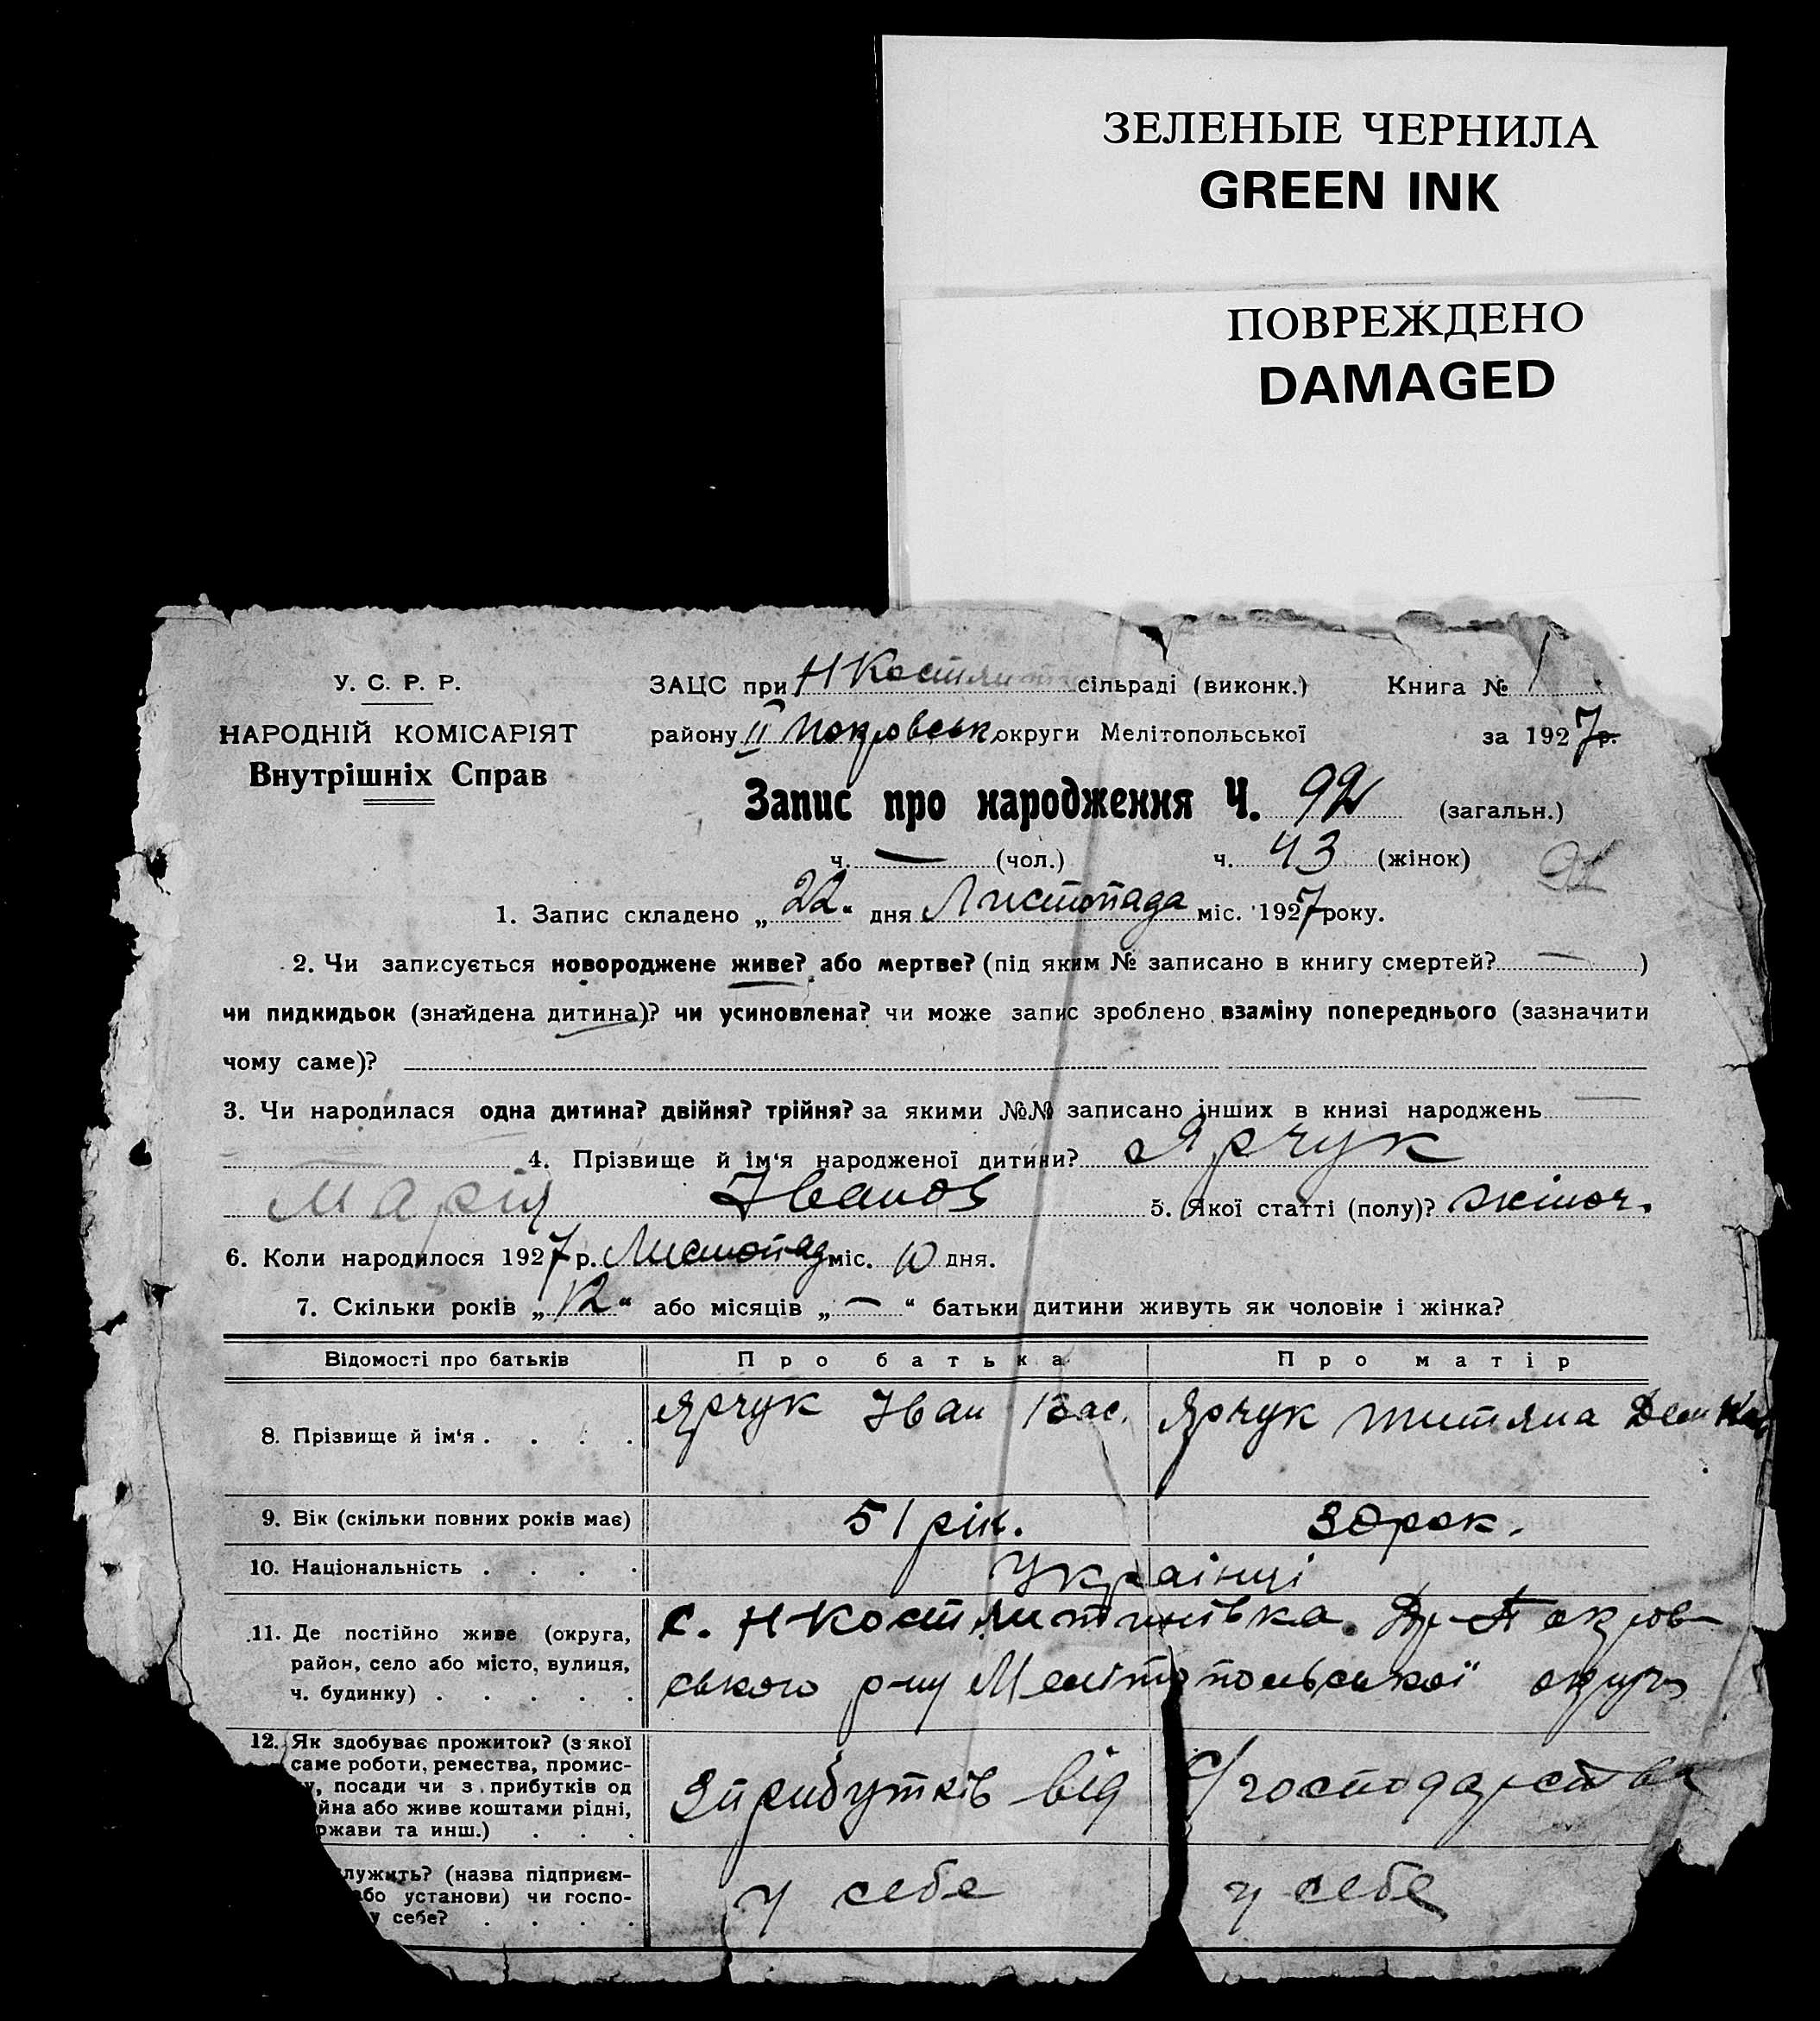 ЗЕЛЕНЫЕ ЧЕРНИЛА
GREEN INK
ПОВРЕЖДЕНО
DAMAGED
У. С. Р. Р.
НАРОДНІЙ КОМІСАРІЯТ
Внутрішніх Справ
ЗАЦС при Н Костянт сільраді (виконк.) Книга № 1
району II Покровськ. округи Мелітопольської за 1927 р.
Запис про народження Ч. 92 (загальн.)
ч. — (чол.) ч. 43 (жінок)
91
1. Запис складено „22“ дня Листопада міс. 1927 року.
2. Чи записується новороджене живе? або мертве? (під яким № записано в книгу смертей? — )
чи пидкидьок (знайдена дитина)? чи усиновлена? чи може запис зроблено взаміну попереднього (зазначити
чому саме)?
3. Чи народилася одна дитина? двійня? трійня? за якими №№ записано інших в книзі народжень —
4. Прізвище й ім‘я народженої дитини? Ярчук
Марія Іванов 5. Якої статті (полу)? жіноч.
6. Коли народилося 1927 р. Листопад міс. 10 дня.
7. Скільки років „12“ або місяців „—“ батьки дитини живуть як чоловік і жінка?
Відомості про батьків Про батька Про матір
8. Прізвище й ім‘я . . . . Ярчук Іван Вас. Ярчук Титяна
9. Вік (скільки повних років має) 51 рік. 30 рок.
10. Національність . . . . Українці
11. Де постійно живе (округа,
район, село або місто, вулиця,
ч. будинку) . . . . .
с. Н Костянтинівка. Др-Покров-
ського р-ну Мелітопольської округи
12. Як здобуває прожиток? (з якої
саме роботи, ремества, промис-
у, посади чи з прибутків од
йна або живе коштами рідні,
ржави та инш.) . . .
З прибутків від с/господарства
лужить? (назва підприєм-
або установи) чи госпо-
у себе? . . . .
у себе у себе